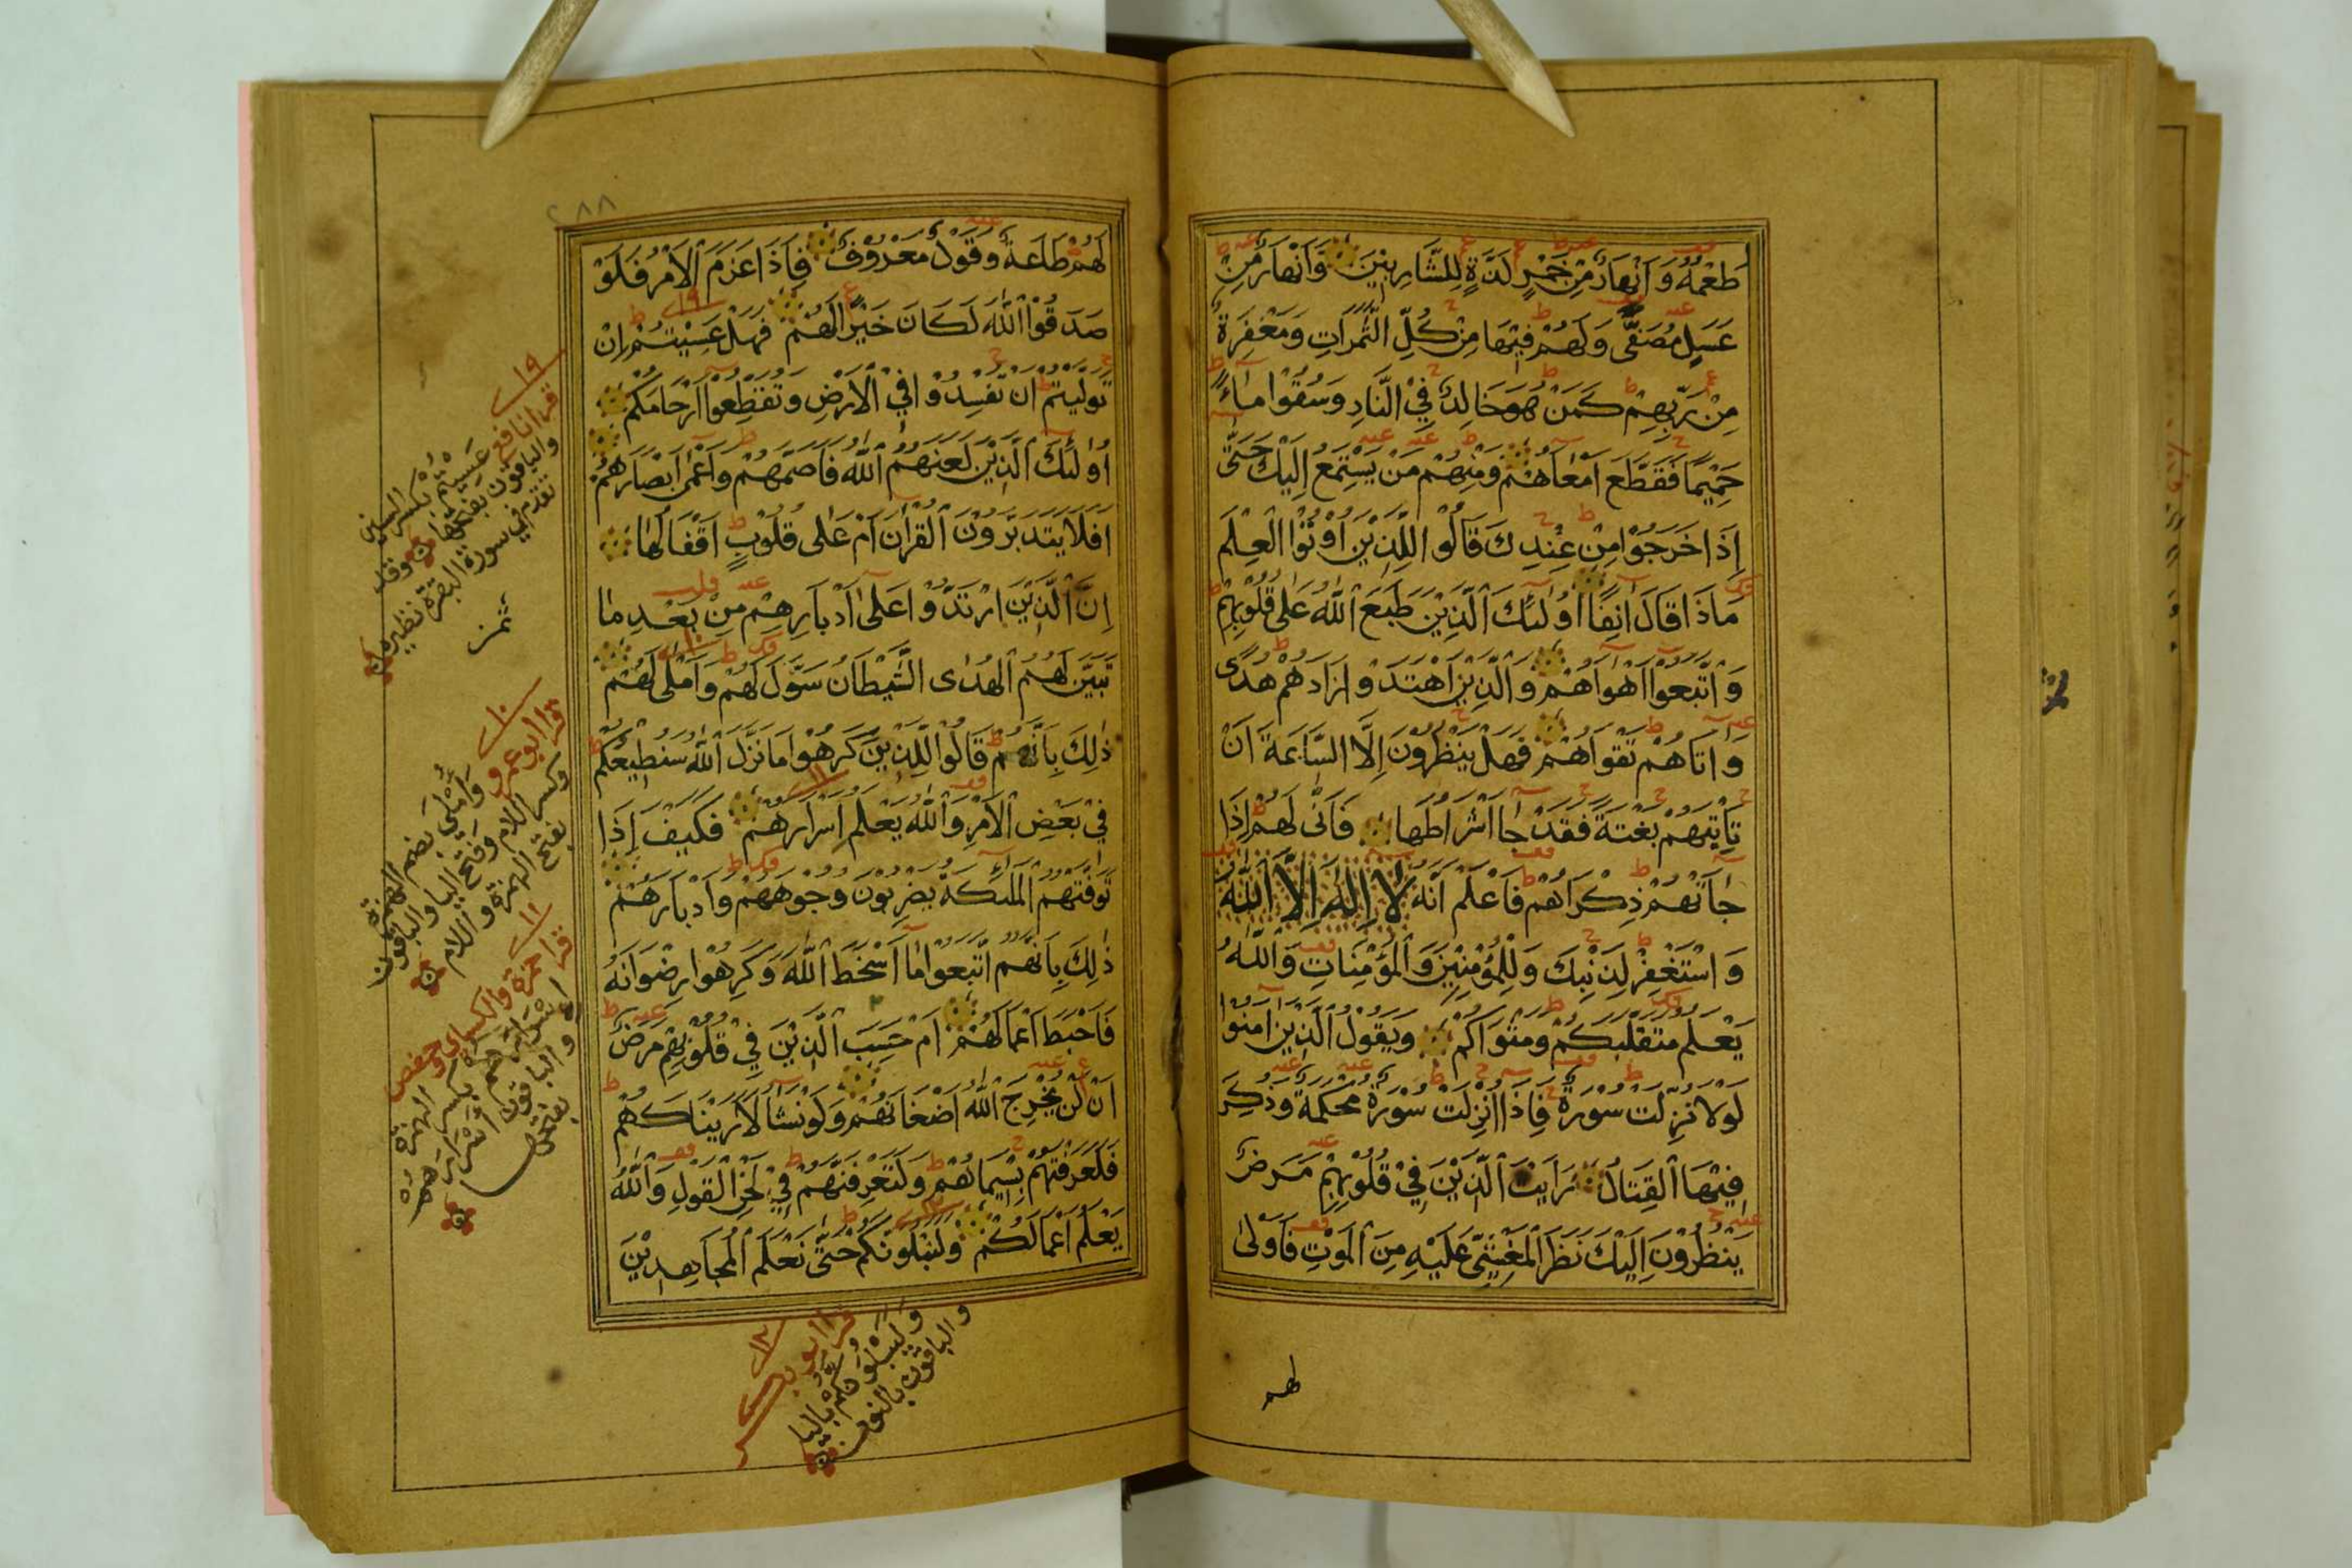 طَعْمُهُ وَاَنْهَارٌ مِنْ خَمْرٍ لَذَّةٍ لِلشَّارِبِيْنَ وَاَنْهَارٌ مِنْ
عَسَلٍ مُصَفًّى وَلَهُمْ فِيْهَا مِنْ كُلِّ الثَّمَرَاتِ وَمَغْفِرَةٌ
مِنْ رَبِّهِمْ كَمَنْ هُوَ خَالِدٌ فِيْ النَّارِ وَسُقُوْا مَاءً
حَمِيْمًا فَقَطَّعَ اَمْعَاهُمْ وَمِنْهُمْ مَنْ يَسْتَمِعُ اِلَيْكَ حَتّٰى
اِذَا خَرَجُوْا مِنْ عِنْدِكَ قَالُوْا لِلَّذِيْنَ اُوْتُوْا الْعِلْمَ
مَاذَا قَالَ اٰنِفًا اُولٰئِكَ الَّذِيْنَ طَبَعَ اللّٰهُ عَلٰى قُلُوْبِهِمْ
وَاتَّبَعُوْا اَهْوَاهُمْ وَالَّذِيْنَ اهْتَدَوْا زَادَهُمْ هُدًى
وَاٰتَاهُمْ تَقْوَاهُمْ فَهَلْ يَنْظُرُوْنَ اِلَّا السَّاعَةَ اَنْ
تَاْتِيَهُمْ بَغْتَةً فَقَدْ جَا اَشْرَاطُهَا فَاَنّٰى لَهُمْ اِذَا
جَآتْهُمْ ذِكْرَاهُمْ فَاعْلَمْ اَنَّهُ لَا اِلٰهَ اِلَّا اللّٰهُ
وَاسْتَغْفِرْ لِذَنْبِكَ وَلِلْمُؤْمِنِيْنَ وَالْمُؤْمِنَاتِ وَاللّٰهُ
يَعْلَمُ مُتَقَلَّبَكُمْ وَمَثْوَاكُمْ وَيَقُوْلُ الَّذِيْنَ اٰمَنُوْا
لَوْلَا نُزِّلَتْ سُوْرَةٌ فَاِذَا اُنْزِلَتْ سُوْرَةٌ مُحْكَمَةٌ وَذُكِرَ
فِيْهَا الْقِتَالُ رَاَيْتَ الَّذِيْنَ فِيْ قُلُوْبِهِمْ مَرَضٌ
يَنْظُرُوْنَ اِلَيْكَ نَظَرَ الْمَغْشِيِّ عَلَيْهِ مِنَ الْمَوْتِ فَاَوْلٰى
لهم
٢٨٨
لَهُمْ طَاعَةٌ وَقَوْلٌ مَعْرُوْفٌ فَاِذَا عَزَمَ الْاَمْرُ فَلَوْ
صَدَقُوْا اللّٰهَ لَكَانَ خَيْرًا لَهُمْ فَهَلْ عَسَيْتُمْ اِنْ
تَوَلَّيْتُمْ اَنْ تُفْسِدُوْا فِيْ الْاَرْضِ وَتُقَطِّعُوْا اَرْحَامَكُمْ
اُولٰئِكَ الَّذِيْنَ لَعَنَهُمُ اللّٰهُ فَاَصَمَّهُمْ وَاَعْمٰى اَبْصَارَهُمْ
اَفَلَا يَتَدَبَّرُوْنَ الْقُرْاٰنَ اَمْ عَلٰى قُلُوْبٍ اَقْفَالُهَا
اِنَّ الَّذِيْنَ ارْتَدُّوْا عَلٰى اَدْبَارِهِمْ مِنْ بَعْدِ مَا
تَبَيَّنَ لَهُمُ الْهُدٰى الشَّيْطَانُ سَوَّلَ لَهُمْ وَاَمْلٰى لَهُمْ
ذٰلِكَ بِاَنَّهُمْ قَالُوْا لِلَّذِيْنَ كَرِهُوْا مَا نَزَّلَ اللّٰهُ سَنُطِيْعُكُمْ
فِيْ بَعْضِ الْاَمْرِ وَاللّٰهُ يَعْلَمُ اِسْرَارَهُمْ فَكَيْفَ اِذَا
تَوَفَّتْهُمُ الْمَلٰئِكَةُ يَضْرِبُوْنَ وُجُوْهَهُمْ وَاَدْبَارَهُمْ
ذٰلِكَ بِاَنَّهُمُ اتَّبَعُوْا مَا اَسْخَطَ اللّٰهَ وَكَرِهُوْا رِضْوَانَهُ
فَاَحْبَطَ اَعْمَالَهُمْ اَمْ حَسِبَ الَّذِيْنَ فِيْ قُلُوْبِهِمْ مَرَضٌ
اَنْ لَنْ يُخْرِجَ اللّٰهُ اَضْغَانَهُمْ وَلَوْ نَشَا لَاَرَيْنَاكَهُمْ
فَلَعَرَفْتَهُمْ بِسِيْمَاهُمْ وَلَتَعْرِفَنَّهُمْ فِيْ لَحْنِ الْقَوْلِ وَاللّٰهُ
يَعْلَمُ اَعْمَالَكُمْ وَلَنَبْلُوَنَّكُمْ حَتّٰى نَعْلَمَ الْمُجَاهِدِيْنَ
٩
قرا نافع عَسِيتُم بكسر السين
والباقون بفتحها وقد
تقدم في سورة البقرة نظيره
ثمن
١٠
قرا ابو عمرو وَأُمْلِيَ بضم الهمزة
وكسر اللام وفتح اليا والباقون
بفتح الهمزة واللام
١١
قرا حمزة والكسائي وحفص
إِسْرَارَهُم بكسر الهمزة
والباقون أَسْرَارَهم
بفتحها
١٢
قرا ابو بكر
وَلَيَبْلُوَنَّكُمْ باليا
والباقون بالنون